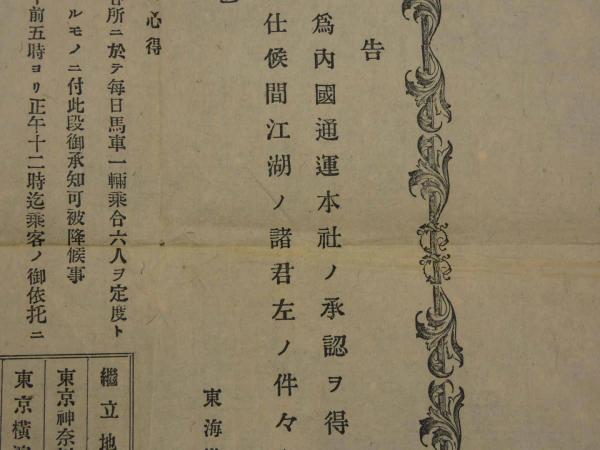 告
爲内國通運本社ノ承認ヲ得
仕候間江湖ノ諸君左ノ件々
東海
心得
所ニ於テ每日馬車一輛乘合六人ヲ定度ト
ルモノニ付此段御承知可被降候事
前五時ヨリ正午十二時迄乘客ノ御依托ニ
繼立地
東京神奈
東京橫